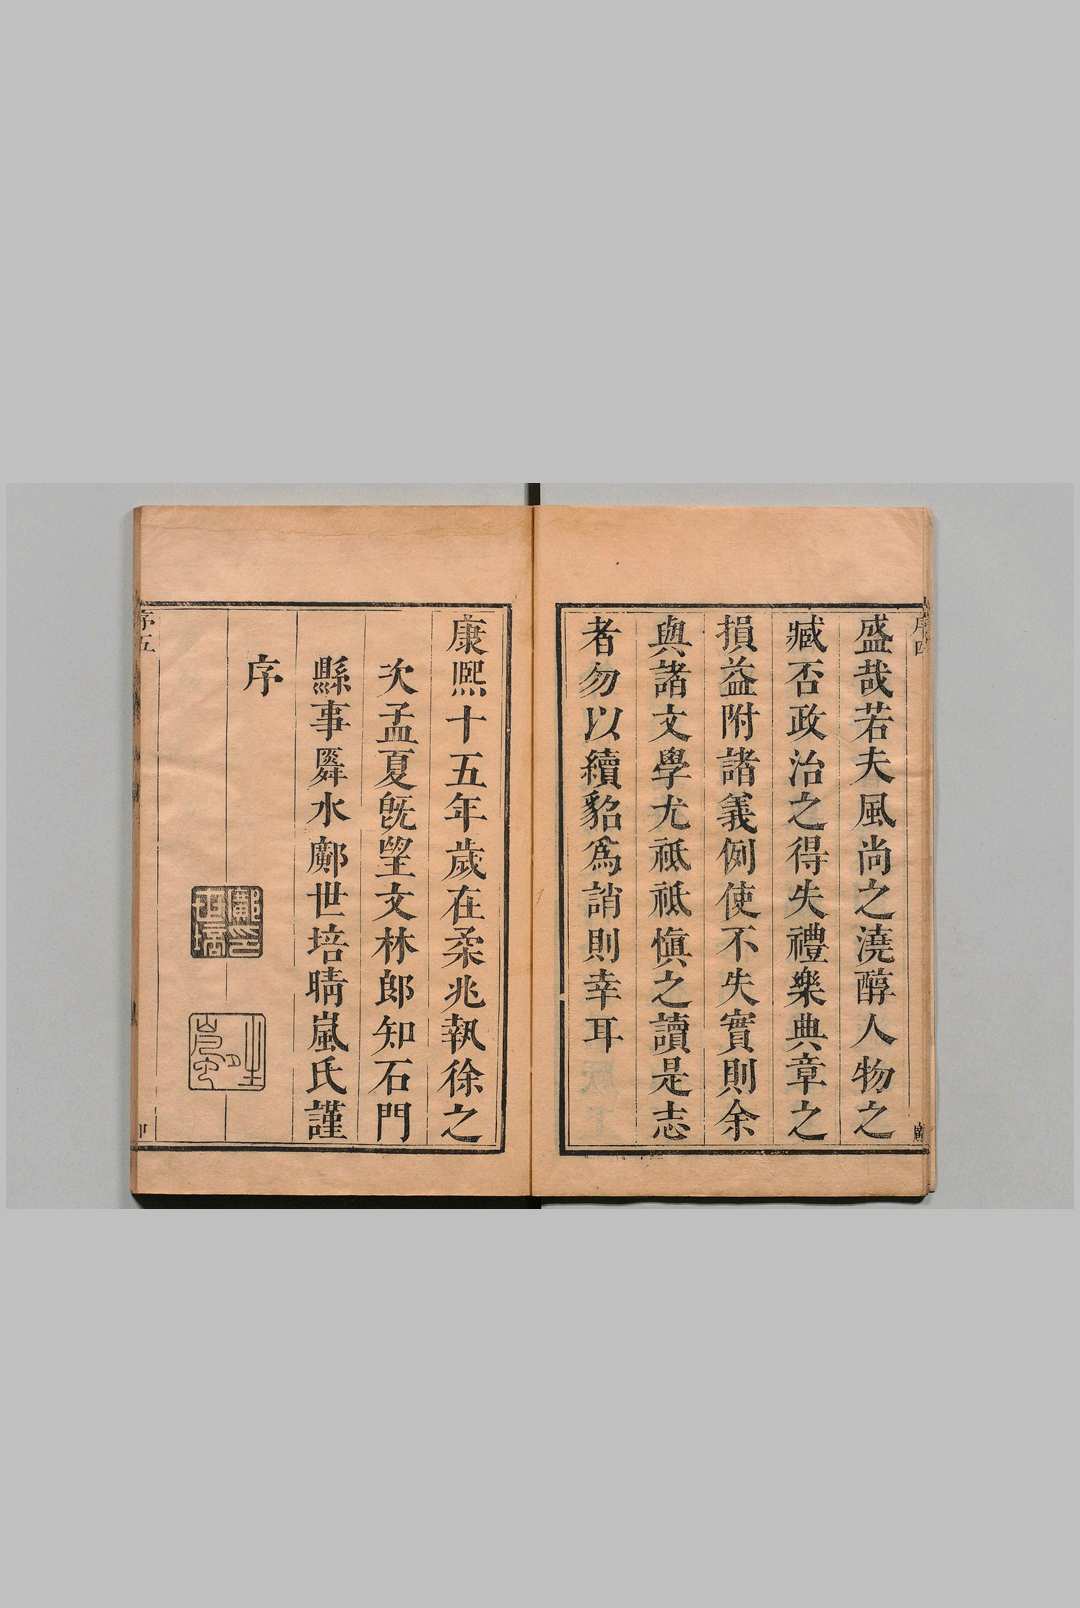 盛哉若夫風尚之澆醇人物之
臧否政治之得失禮樂典章之
損益附諸義例使不失實則余
與諸文學尤祗祗愼之讀是志
者勿以續貂爲誚則幸耳
序四
康熙十五年歲在柔兆執徐之
次孟夏旣望文林郎知石門
縣事舜水鄺世培晴嵐氏謹
序
鄺印世培
序五